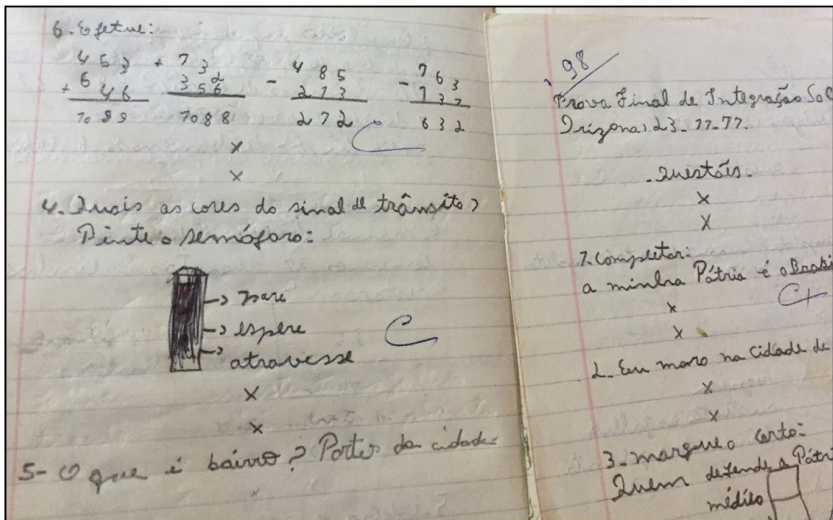 6. Efetue:
453 + 73 - 485 - 763
+ 646 356 213 132
1099 1088 272 632
x
x
4. Quais as cores do sinal de trânsito?
Pinte o semáforo:
→ pare
→ espere
→ atravesse
x
x
5- O que é bairro? Partes da cidade
98
Prova Final de Integração Soc
23-11-77.
Questões.
x
x
1. Completar:
a minha Pátria é o Brasi
x
x
2. Eu moro na cidade de
x
x
3. marque o certo:
Quem defende a Pátri
médico